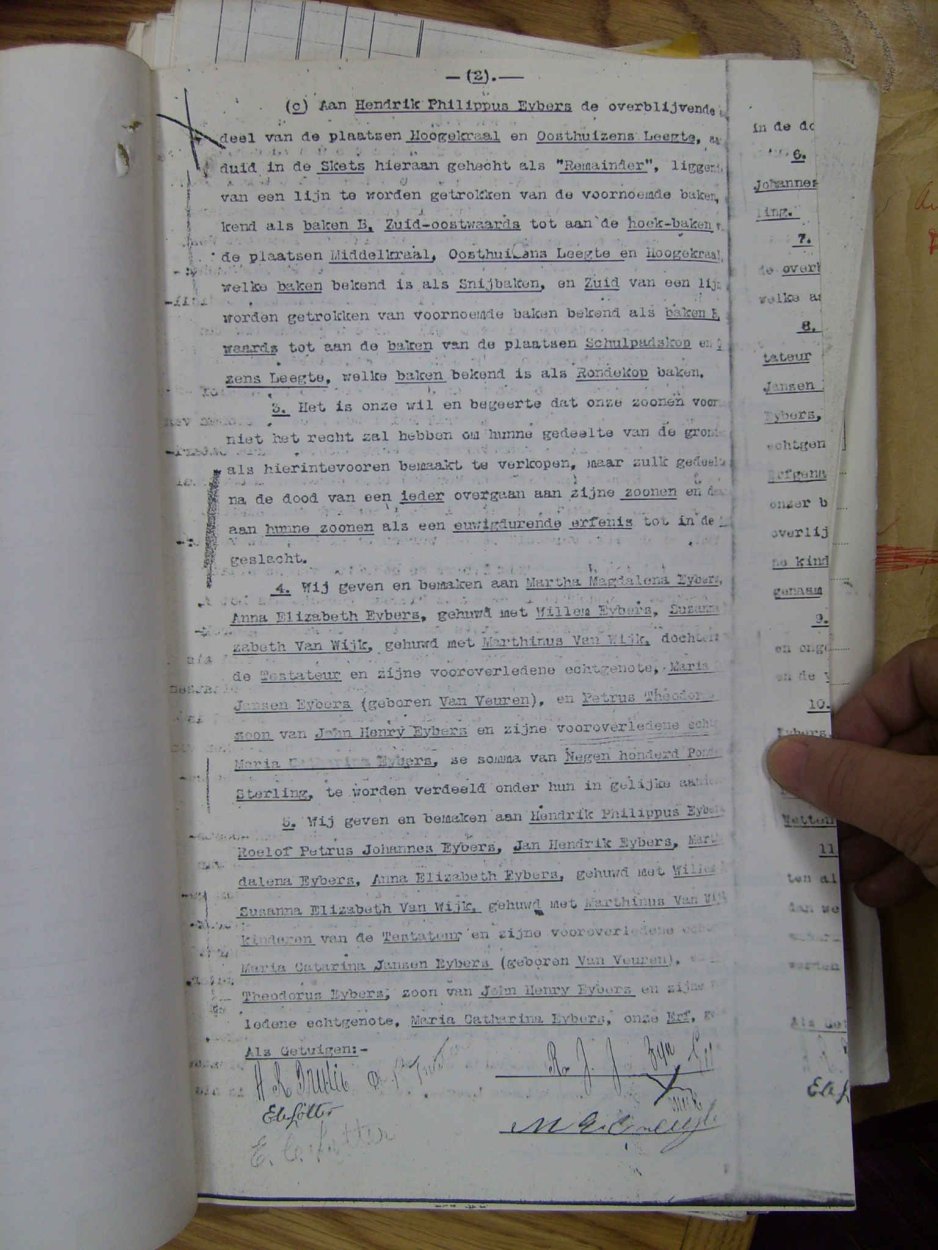 —(2).—
(c) Aan Hendrik Philippus Eybers de overblijvende
deel van de plaatsen Hoogekraal en Oosthuizens Leegte,
duid in de Skets hieraan gehecht als "Remainder", liggen
van een lijn te worden getrokken van de voornoemde baken,
kend als baken B, Zuid-oostwaards tot aan de hoek-baken
de plaatsen Middelkraal, Oosthuizens Leegte en Hoogekraal
welke baken bekend is als Snijbaken, en Zuid van een lij
worden getrokken van voornoemde baken bekend als baken B,
waards tot aan de baken van de plaatsen Schulpadskop en
zens Leegte, welke baken bekend is als Rondekop baken.
3. Het is onze wil en begeerte dat onze zoonen voor
niet het recht zal hebben om hunne gedeelte van de gron
als hierintevooren bemaakt te verkopen, maar zulk gedeel
na de dood van een ieder overgaan aan zijne zoonen en
aan hunne zoonen als een euwigdurende erfenis tot in de
geslacht.
4. Wij geven en bemaken aan Martha Magdalena Eybers,
Anna Elizabeth Eybers, gehuwd met Willem Eybers, Susanna
zabeth Van Wijk, gehuwd met Marthinus Van Wijk, dochter
de Testateur en zijne vooroverledene echtgenote, Maria
Jansen Eybers (geboren Van Veuren), en Petrus Theodor
zoon van John Henry Eybers en zijne vooroverledene echt
Maria Catharina Eybers, se somma van Negen honderd Pond
Sterling, te worden verdeeld onder hun in gelijke aand
5. Wij geven en bemaken aan Hendrik Philippus Eyber
Roelof Petrus Johannes Eybers, Jan Hendrik Eybers, Mart
dalena Eybers, Anna Elizabeth Eybers, gehuwd met Willem
Susanna Elizabeth Van Wijk, gehuwd met Marthinus Van Wij
kinderen van de Testateur en zijne vooroverledene echt
Maria Catarina Jansen Eybers (geboren Van Veuren),
Theodorus Eybers, zoon van John Henry Eybers en zijne
ledene echtgenote, Maria Catharina Eybers, onze Erf, g
Als Getuigen:-
in de do
6.
Johannes
ling.
7.
de overl
welke a
8.
tateur
Jansen
Eybers,
echtgen
Erfgena
onzer b
overlij
ne kind
genaam
9.
en onge
en de
10.
Eybers,
Wetten
11
ten al
dan we
worden
Als Get